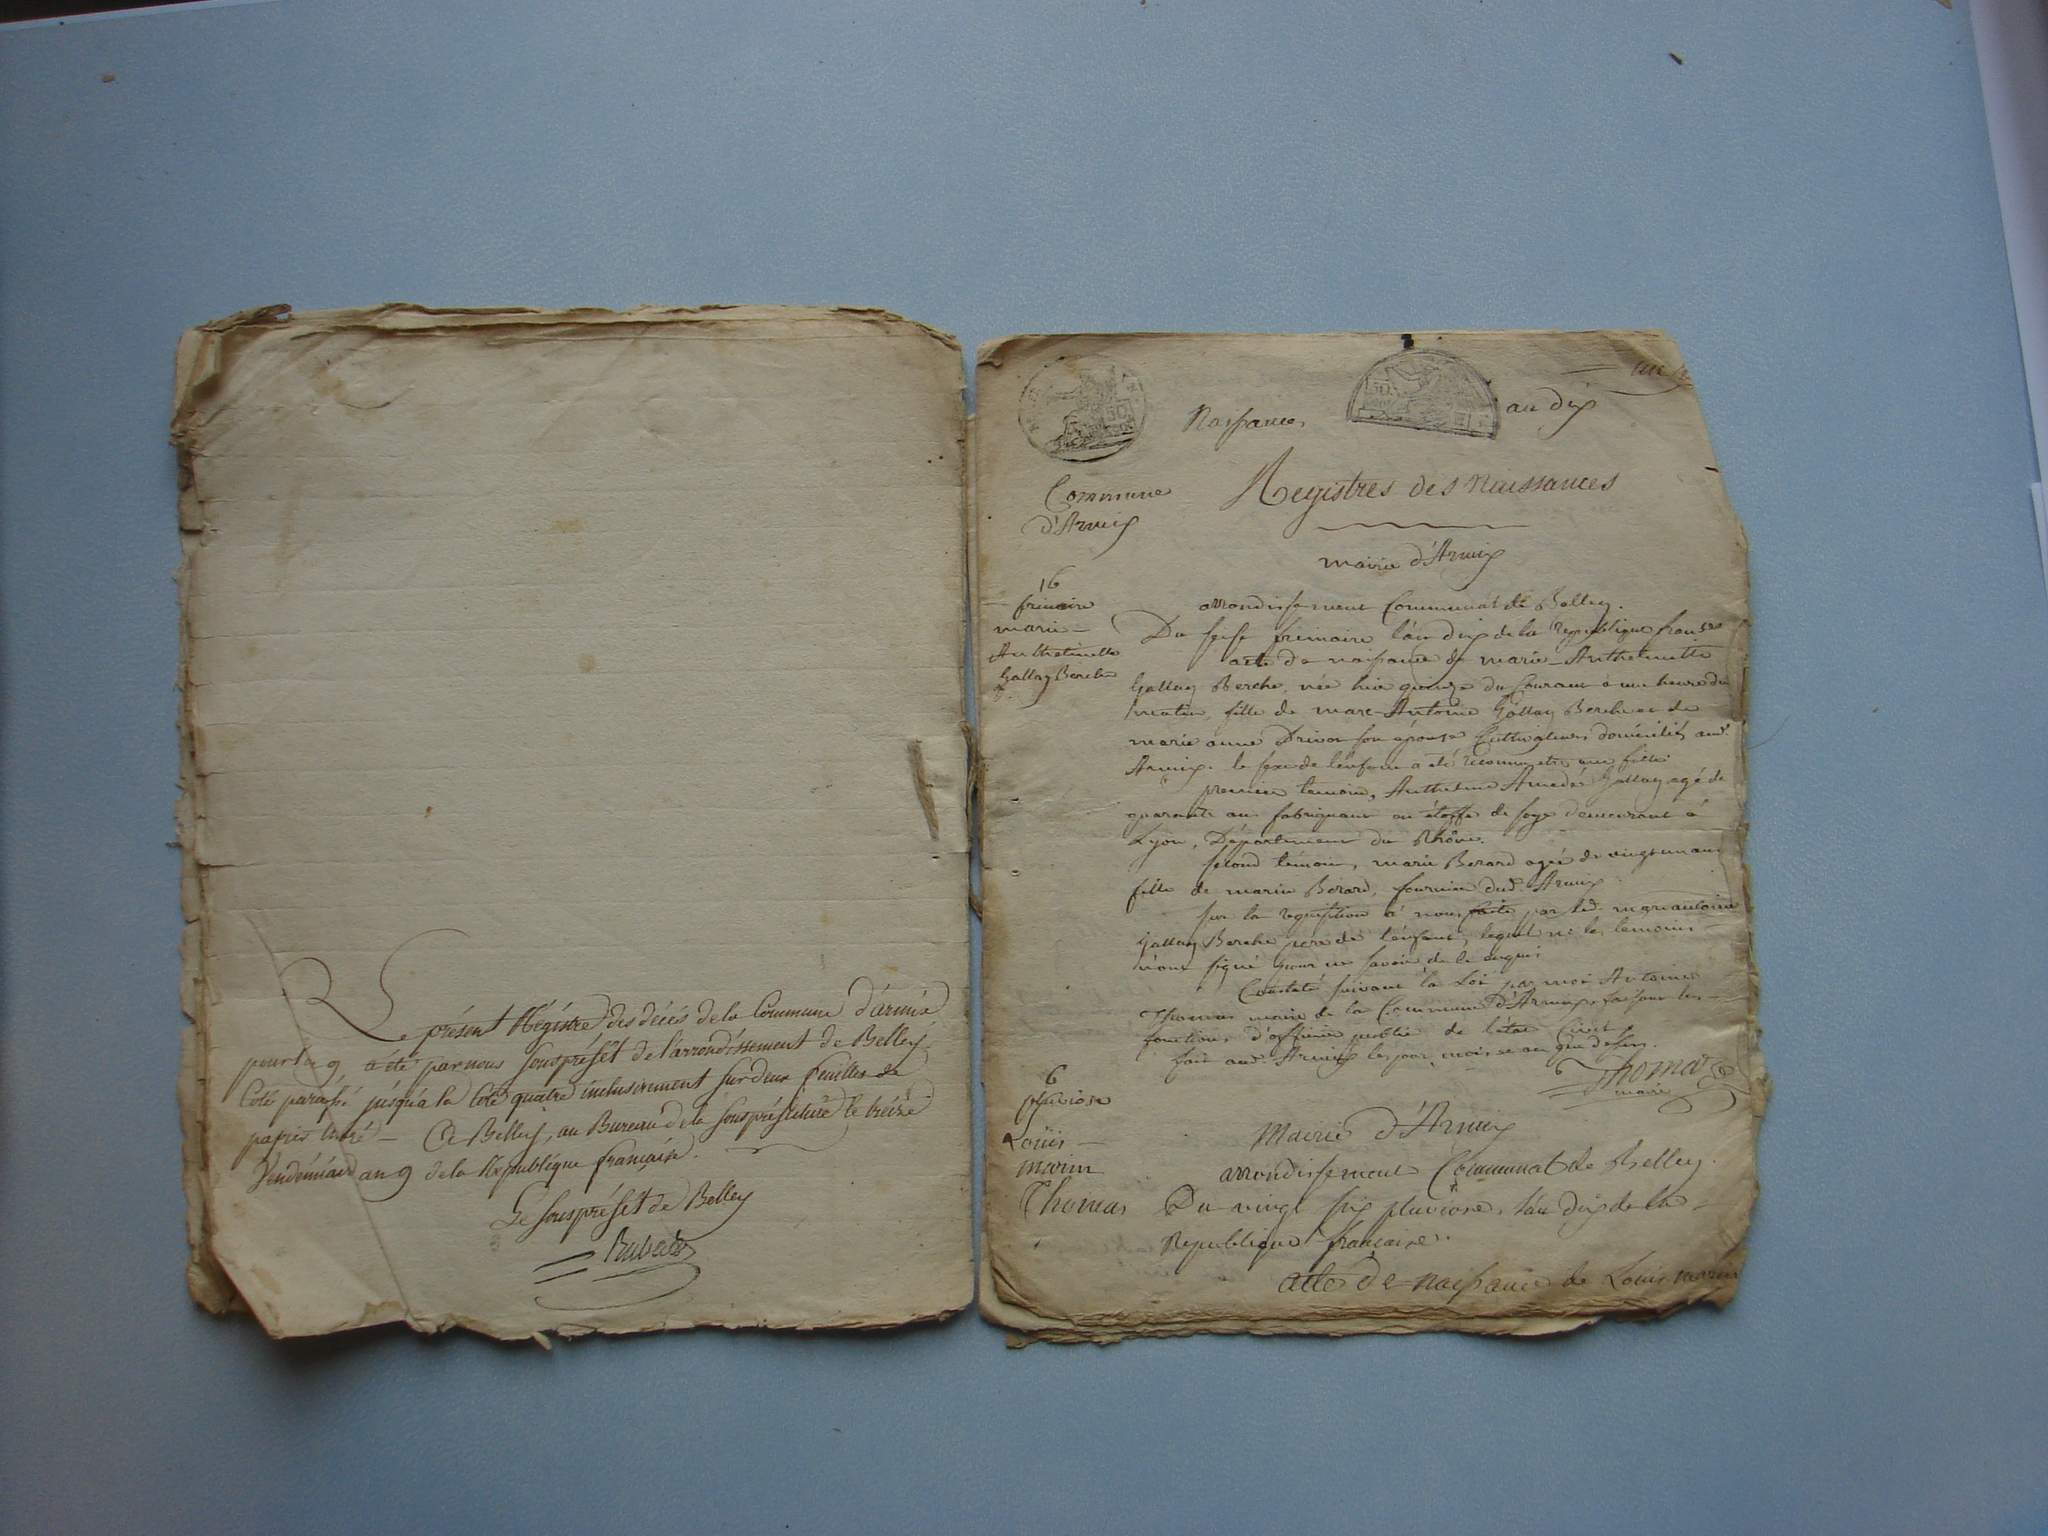 Le présent Régistre des décés de la Commune d'armix
pour l'an 9, a été par nous souspréfét de l'arrondissement de Belley
Coté paraphé jusqu'a la Coté quatre inclusivement sur deux feuilles de
papier timbré — A Belley, au Bureau de la souspréfécture le treize
Vendémiaire an 9 de la République française.
Le souspréfét de Belley
Naissances
an dix
Commune
d'Armix
Registres des naissances
mairie d'Armix
16
frimaire
marie-
Anthelmette
Gallay Berche
arrondissement Communal de Belley.
Du seise frimaire l'an dix de la République française
acte de naissance de marie-Anthelmette
Gallay Berche, née hier quinze du Courant à une heure du
matin, fille de marc-Antoine Gallay Berche et de
marie anne son épouse Cultivateurs domiciliés aud.
Armix. le sexe de l'enfant a été reconnu être une fille
premier temoin, Anthelme Amedé Gallay agé de
quarante ans fabriquant en étoffe de soye demeurant à
Lyon, Département du Rhône.
second témoin, marie Berard agée de vingt un ans
fille de marin Bérard, dud. Armix
sur la requisition à nous faite par led. marc antoine
Gallay Berche pere de l'enfant, lequel ni les temoins
n'ont signé pour ne savoir de le enquis
Constaté suivant la Loi par moi Antoine
Thomas maire de la Commune d'Armix faisant les
fonctions d'officier public de l'état Civil
fait aud. Armix les jour, mois et an que dessus.
Thomas
maire
6
pluviose
Louis-
marin
Thomas
Mairie d'Armix
arrondissement Communal de Belley.
Du vingt six pluviose, l'an dix de la
République française.
acte de naissance de Louis marin